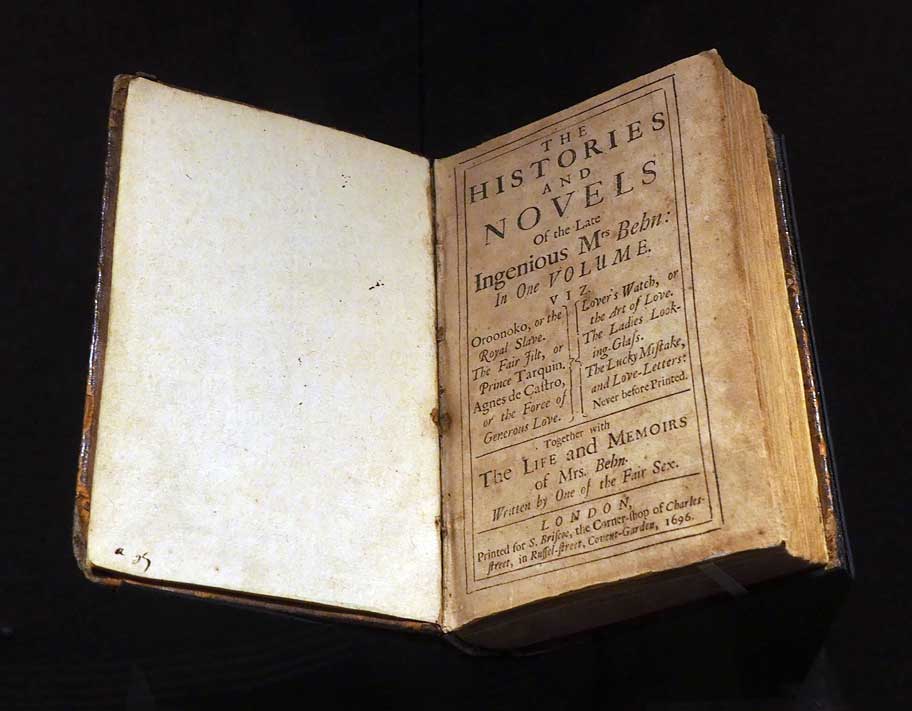 THE
HISTORIES
AND
NOVELS
Of the Late
Ingenious Mrs Behn:
In One VOLUME.
VIZ.
Oroonoko, or the
Royal Slave.
The Fair Jilt, or
Prince Tarquin.
Agnes de Caſtro,
or the Force of
Generous Love.
Lover's Watch, or
the Art of Love.
The Ladies Look-
ing-Glaſs.
The Lucky Miſtake,
and Love-Letters:
Never before Printed.
Together with
The LIFE and MEMOIRS
of Mrs. Behn.
Written by One of the Fair Sex.
LONDON,
Printed for S. Briſcoe, the Corner-ſhop of Charles-
ſtreet, in Ruſſel-ſtreet, Covent-Garden, 1696.